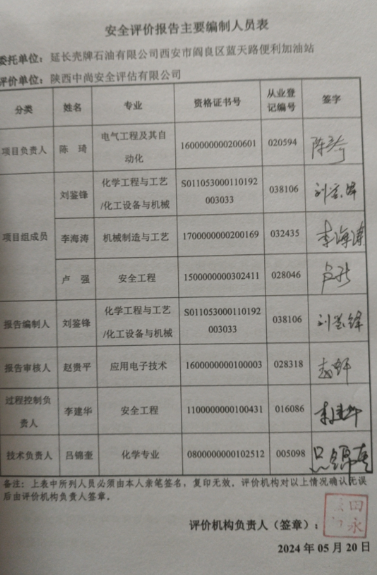 安全评价报告主要编制人员表
委托单位：延长壳牌石油有限公司西安市阎良区蓝天路便利加油站
评价单位：陕西中尚安全评估有限公司
分类 姓名 专业 资格证书号 从业登记编号 签字
项目负责人 陈琦 电气工程及其自动化 1600000000200601 020594 陈琦
项目组成员 刘鉴锋 化学工程与工艺/化工设备与机械 S011053000110192003033 038106 刘鉴锋
李海涛 机械制造与工艺 1700000000200169 032435 李海涛
卢强 安全工程 1500000000302411 028046 卢强
报告编制人 刘鉴锋 化学工程与工艺/化工设备与机械 S011053000110192003033 038106 刘鉴锋
报告审核人 赵贵平 应用电子技术 1600000000100003 028318
过程控制负责人 李建华 安全工程 1100000000100431 016086 李建华
技术负责人 吕锦奎 化学专业 0800000000102512 005098 吕锦奎
备注：上表中所列人员必须由本人亲笔签名，复印无效，评价机构对以上情况确认无误后由评价机构负责人签章。
评价机构负责人（签章）：
2024 年 05 月 20 日